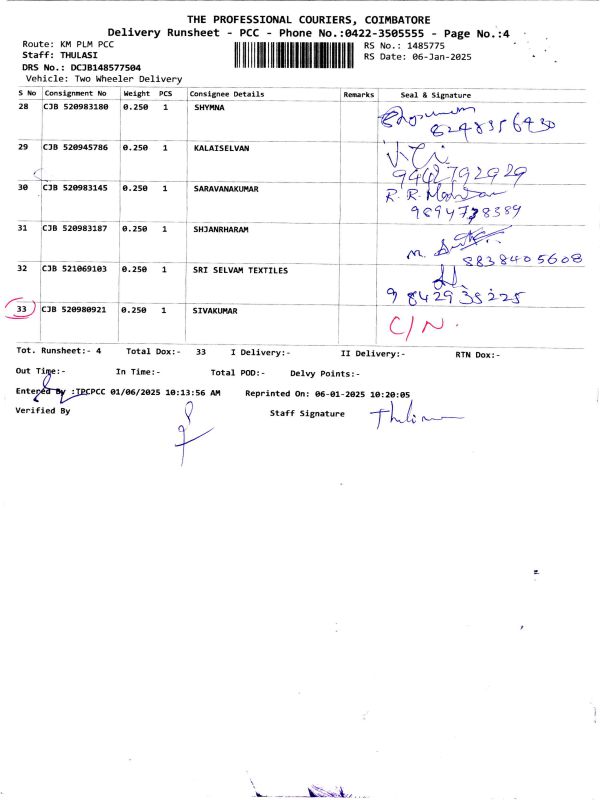 THE PROFESSIONAL COURIERS, COIMBATORE
Delivery Runsheet - PCC - Phone No.:0422-3505555 - Page No.:4
Route: KM PLM PCC
RS No.: 1485775
Staff: THULASI
RS Date: 06-Jan-2025
DRS No.: DCJB148577504
Vehicle: Two Wheeler Delivery
S No Consignment No Weight PCS Consignee Details Remarks Seal & Signature
28 CJB 520983180 0.250 1 SHYMNA
8248356430
29 CJB 520945786 0.250 1 KALAISELVAN
9442792929
30 CJB 520983145 0.250 1 SARAVANAKUMAR R. R.
9894778389
31 CJB 520983187 0.250 1 SHJANRHARAM
8838405608
32 CJB 521069103 0.250 1 SRI SELVAM TEXTILES
9842935225
33 CJB 520980921 0.250 1 SIVAKUMAR C/N.
Tot. Runsheet:- 4 Total Dox:- 33 I Delivery:- II Delivery:- RTN Dox:-
Out Time:- In Time:- Total POD:- Delvy Points:-
Entered By :TPCPCC 01/06/2025 10:13:56 AM Reprinted On: 06-01-2025 10:20:05
Verified By Staff Signature